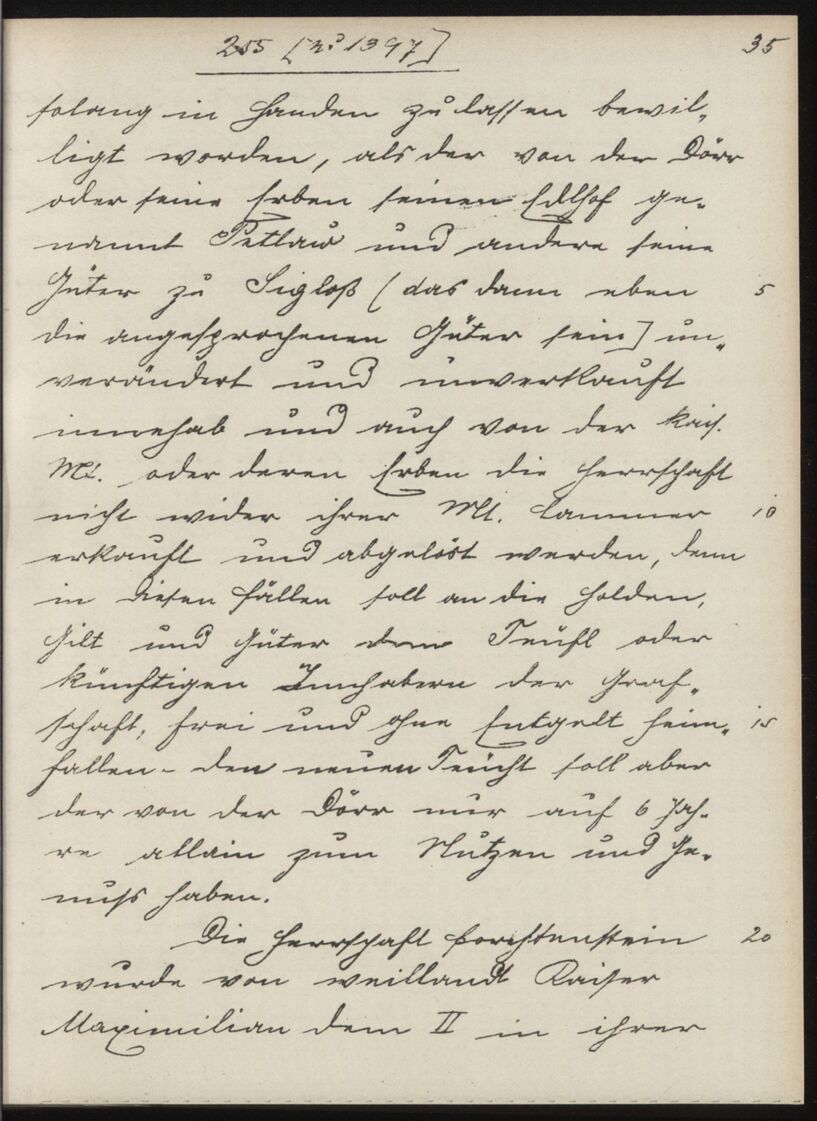 255 [No 1397] 35
solang in Handen zu lassen bewil-
ligt worden, als der von der Dörr
oder seine Erben seinen Edlhof ge-
nannt Petlaw und andere seine
Güter zu Sigloß (das dann eben 5
die angesprochenen Güter sein] un-
verändert und unverkauft
innehab und auch von der Kais.
Mt. oder deren Erben die Herrschaft
nicht wider ihrer Mt. Cammer 10
erkauft und abgelöst werden, denn
in diesen Fällen soll an die Holden,
Gilt und Güter dem Teufl oder
künftigen Innhabern der Graf-
schaft, frei und ohne Entgelt heim- 15
fallen - den neuen Teucht soll aber
der von der Dörr nur auf 6 Jah-
re allain zum Nutzen und Ge-
nuss haben.
Die Herrschaft Forchtenstein 20
wurde von weillandt Kaiser
Maximilian dem II in ihrer